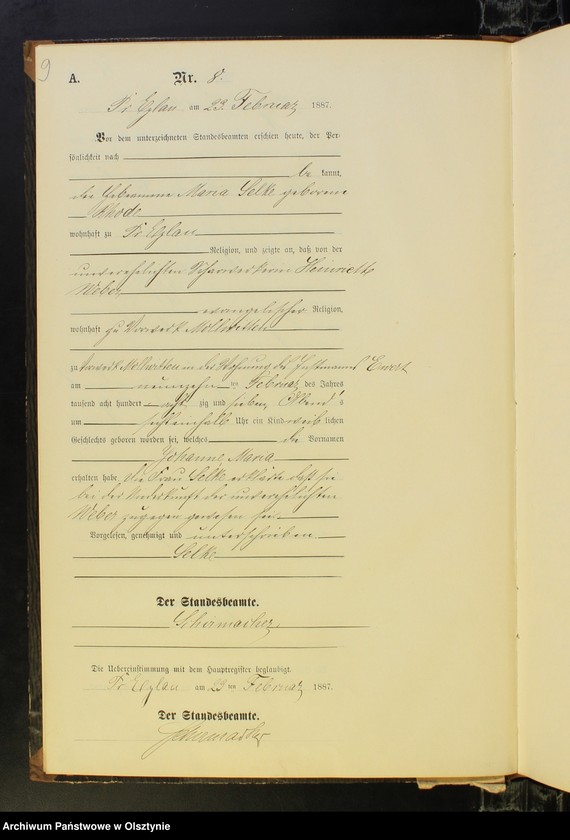 9
A. Nr. 8.
Pr. Eylau am 23. Februar 1887.
Vor dem unterzeichneten Standesbeamten erschien heute, der Per-
sönlichkeit nach
be kannt,
die Hebeamme Maria Selke geborene
Rhode
wohnhaft zu Pr. Eylau
Religion, und zeigte an, daß von der
unverehelichten Scharwerkerin
Weber
evangelischer Religion,
wohnhaft zu Vorwerk
zu Vorwerk in der Wohnung des Instmanns
am neunzehn ten Februar des Jahres
tausend acht hundert acht zig und sieben Abend s
um Uhr ein Kind weib lichen
Geschlechts geboren worden sei, welches die Vornamen
Johanne Maria
erhalten habe. Die Frau Selke erklärte daß sie
bei der Niederkunft der unverehelichten
Weber zugegen gewesen sei.
Vorgelesen, genehmigt und unterschrieben
Selke
Der Standesbeamte.
Schirmacher.
Die Uebereinstimmung mit dem Hauptregister beglaubigt.
Pr. Eylau am 23 ten Februar 1887.
Der Standesbeamte.
Schirmacher
Archiwum Państwowe w Olsztynie